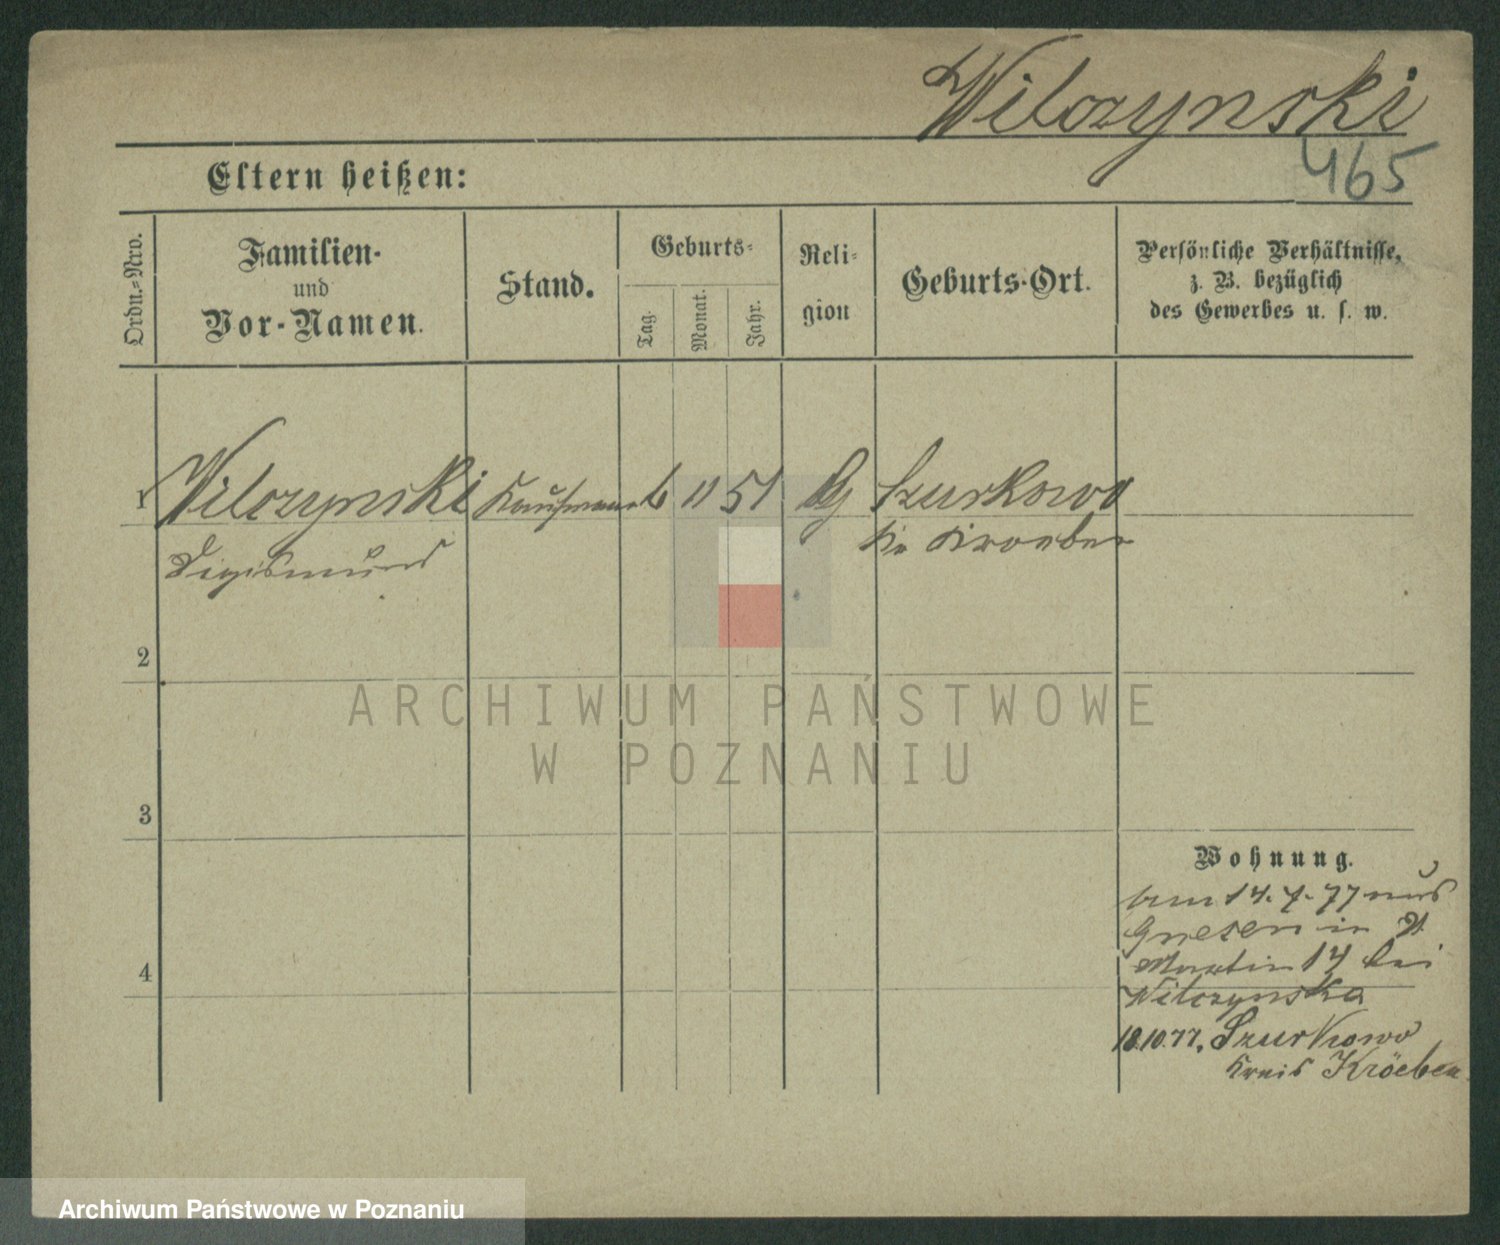 Wilczynski
465
Eltern heißen:
Ordn.=Nro.
Familien-
und
Vor-Namen.
Stand.
Geburts=
Tag.
Monat.
Jahr.
Reli=
gion
Geburts-Ort.
Persönliche Verhältnisse,
z. B. bezüglich
des Gewerbes u. s. w.
1 Wilczynski Kaufmann 6 11 51 Szurkowo
Kr Kroeben
Sigismund
2
3
4
Wohnung.
14. 7. 77 aus
Gnesen in St
Martin 14 bei
Wilczynska
18.10.77. Szurkowo
Kreis Kröeben
ARCHIWUM PAŃSTWOWE
W POZNANIU
Archiwum Państwowe w Poznaniu